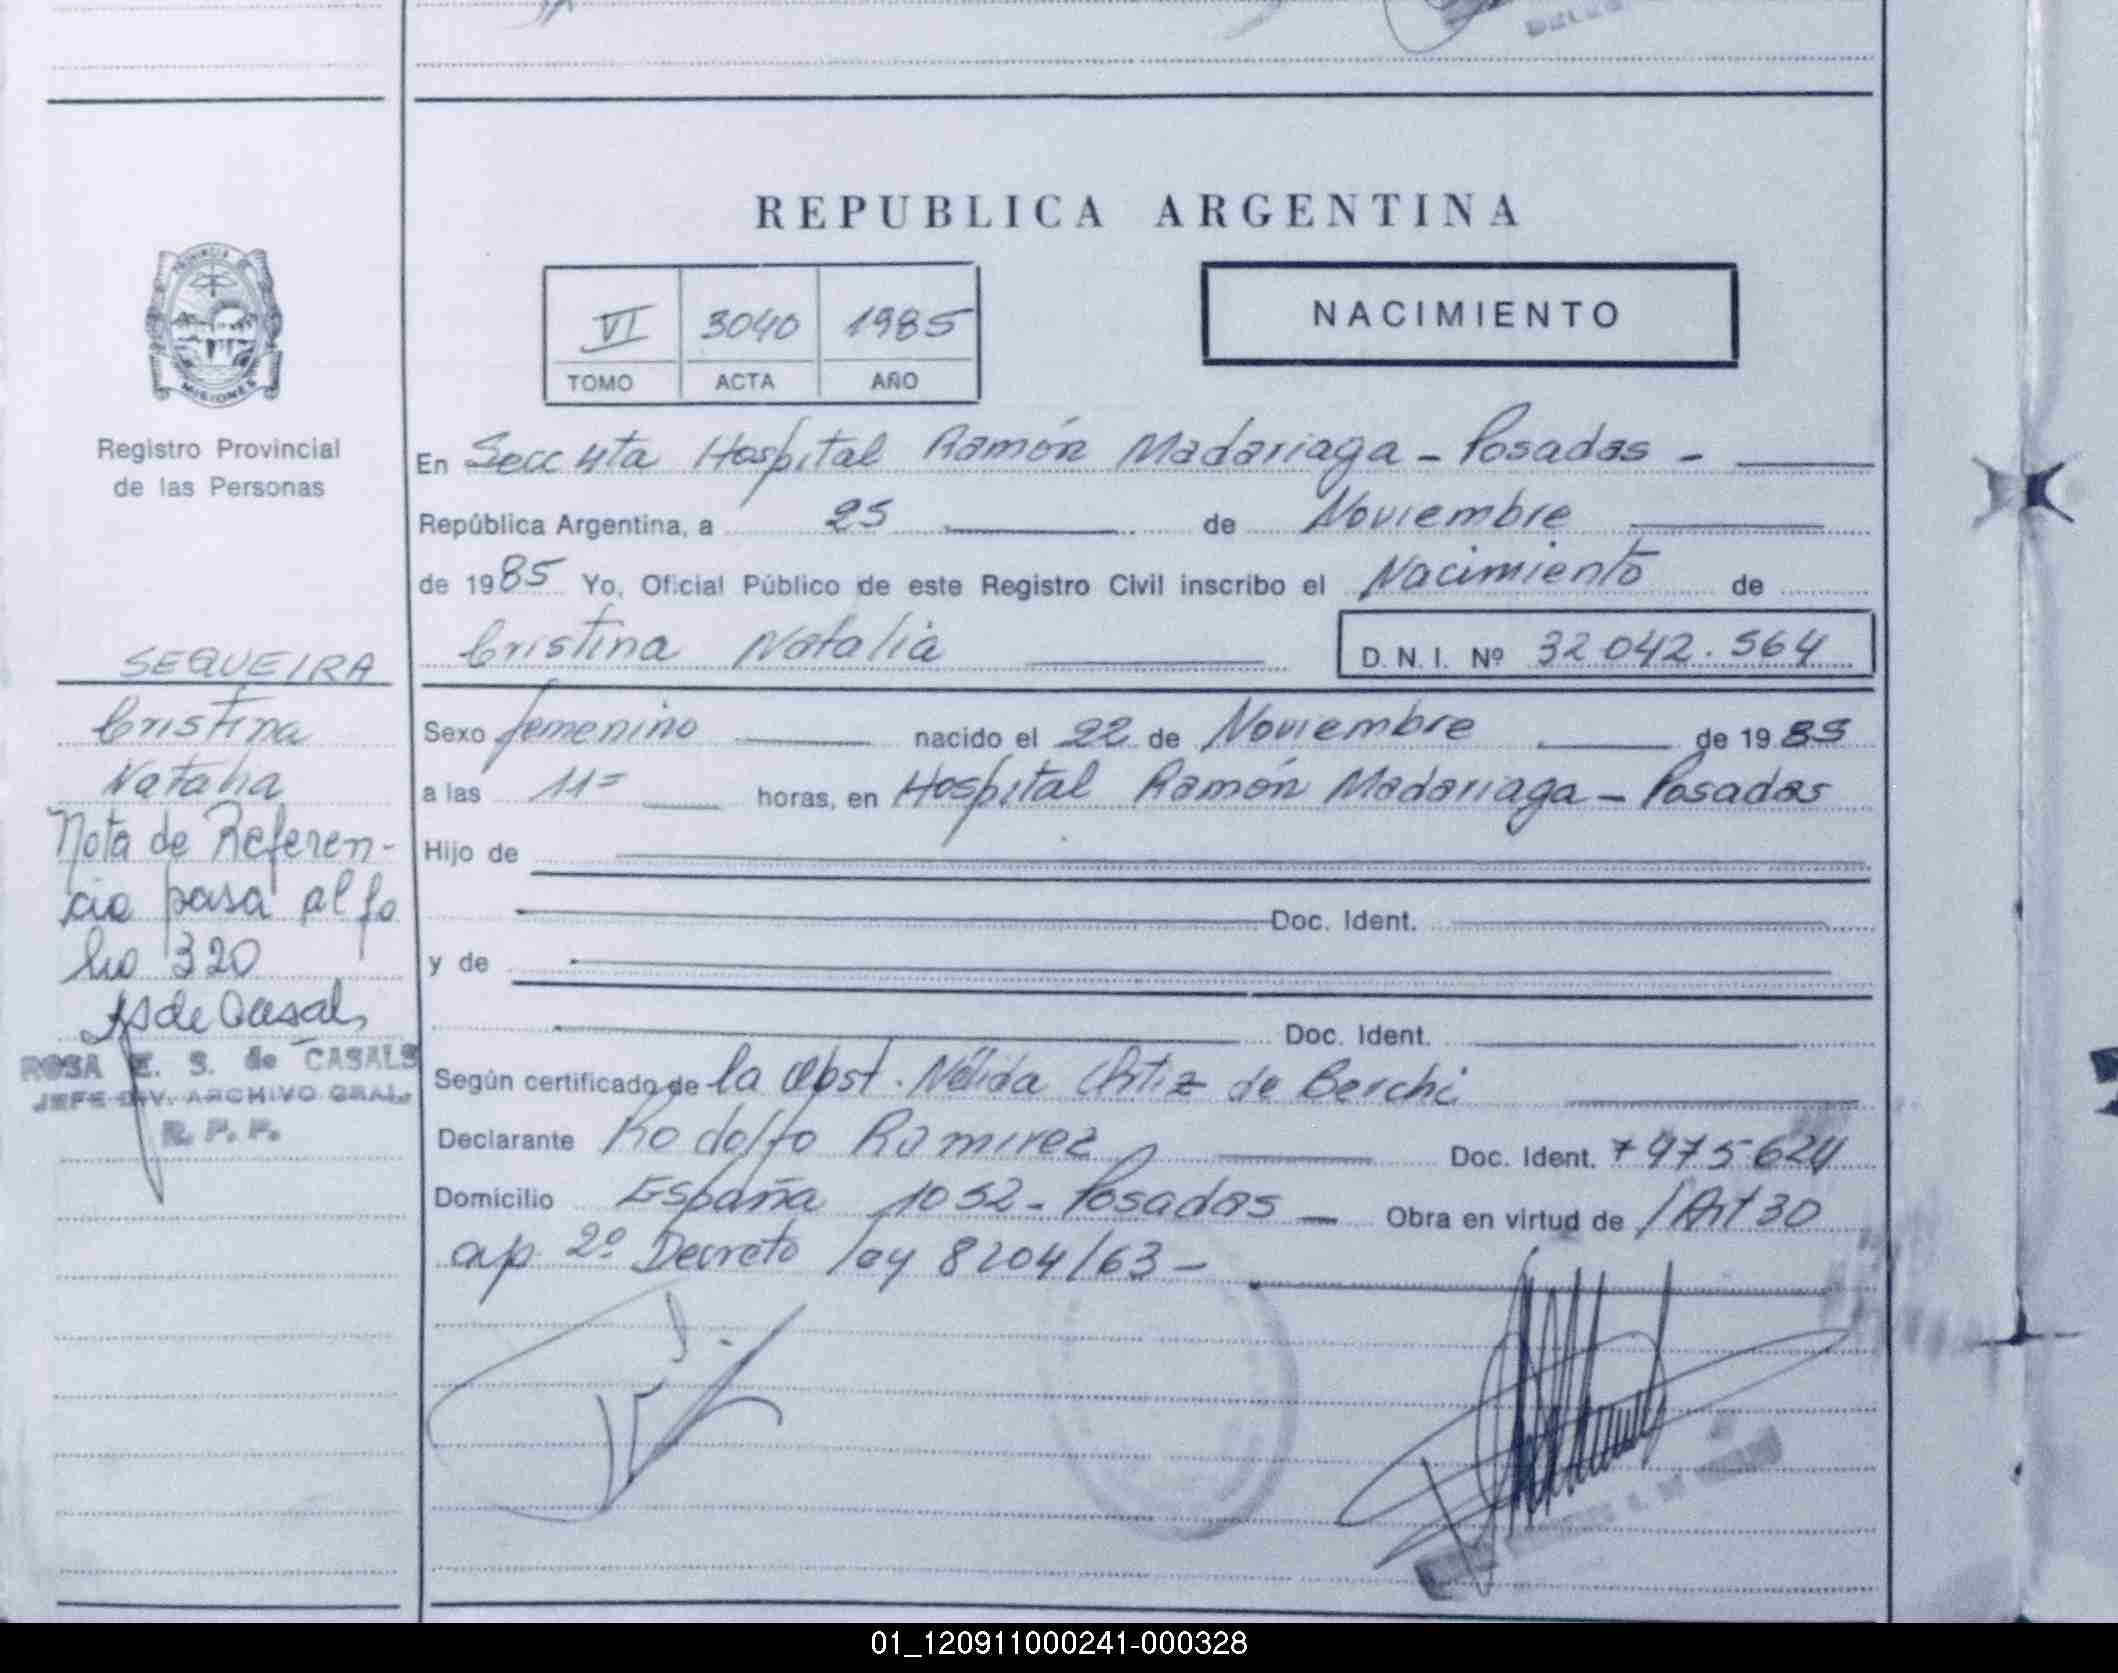 REPUBLICA ARGENTINA
VI 3040 1985
TOMO ACTA AÑO
NACIMIENTO
PROVINCIA DE
MISIONES
Registro Provincial
de las Personas
En Secc 4ta Hospital Ramón Madariaga - Posadas -
República Argentina, a 25 de Noviembre
de 1985 Yo, Oficial Público de este Registro Civil inscribo el Nacimiento de
Cristina Natalia D.N.I. Nº 32 042.564
SEQUEIRA
Cristina
Natalia
Nota de Referen-
cia pasa al fo
lio 320
ROSA E. S. de CASALS
JEFE DIV. ARCHIVO GRAL.
R. P. P.
Sexo femenino nacido el 22 de Noviembre de 1985
a las 11= horas, en Hospital Ramón Madariaga - Posadas
Hijo de
Doc. Ident.
y de
Doc. Ident.
Según certificado de la Obst. Nélida Ortiz de Berchi
Declarante Rodolfo Ramirez Doc. Ident. 7975624
Domicilio España 1052 - Posadas - Obra en virtud de /Art 30
ap 2º Decreto ley 8204/63 -
01_120911000241-000328